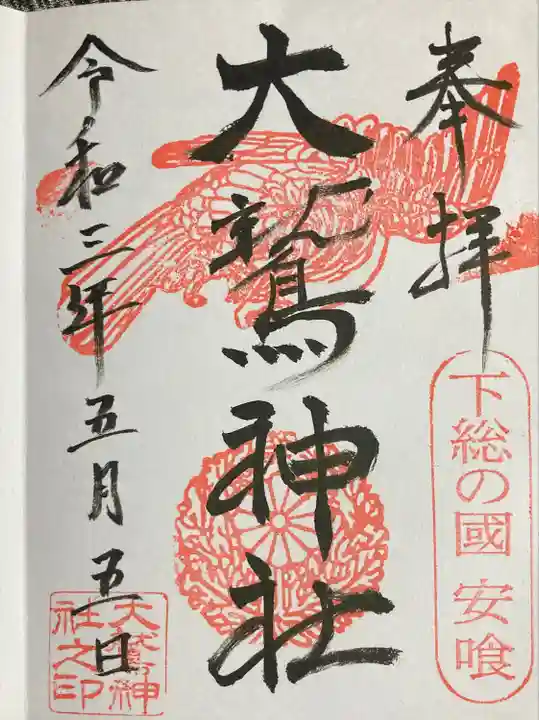 奉拝
下総の國 安喰
大鷲神社
令和三年五月五日
大鷲神
社之印